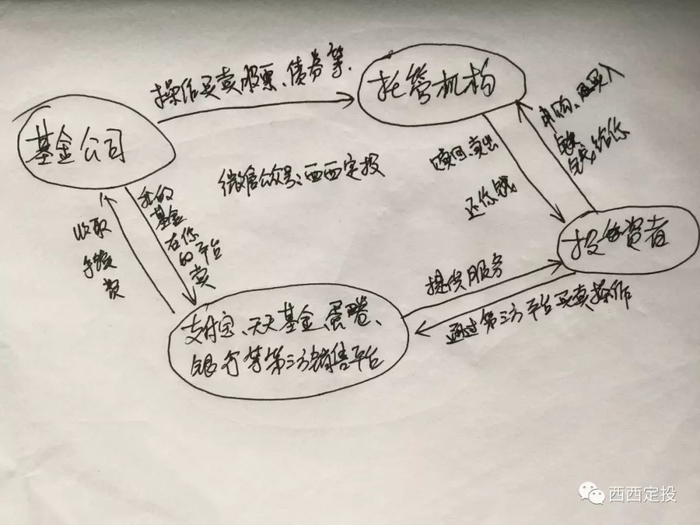 操作买卖股票、债券等.
托管机构
基金公司
申购、买入
钱给你
微信公众号:西西定投
赎回、卖出
还你钱
我的
基金
在你
的平台
卖
收取
手续
费
投资者
提供服务
通过第三方平台买卖操作
支付宝、天天基金、蛋卷、
银行等第三方销售平台
西西定投